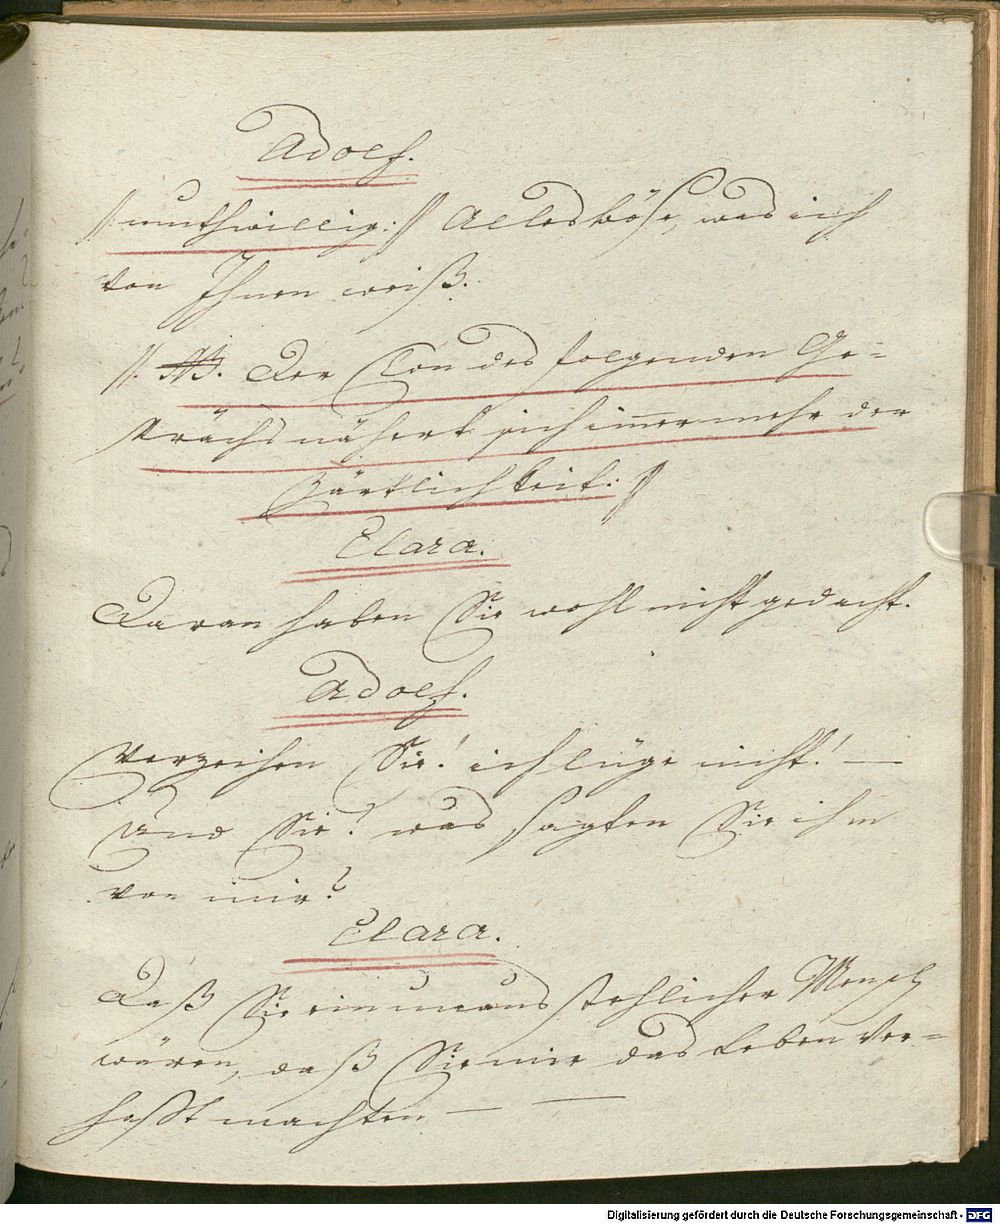 Adolf.
/: muthwillig :/ Alles böse, was ich
von Ihnen weiß.
/: NB. Der Ton des folgenden Ge-
sprächs nähert sich immer mehr der
Zärtlichkeit. :/
Clara.
Daran haben Sie wohl nicht gedacht.
Adolf.
Verzeihen Sie! ich lüge nicht! —
Und Sie? was sagten Sie ihm
von mir?
Clara.
Daß Sie ein unausstehlicher Mensch
wären, daß Sie mir das Leben ver-
haßt machten — —
Digitalisierung gefördert durch die Deutsche Forschungsgemeinschaft - DFG